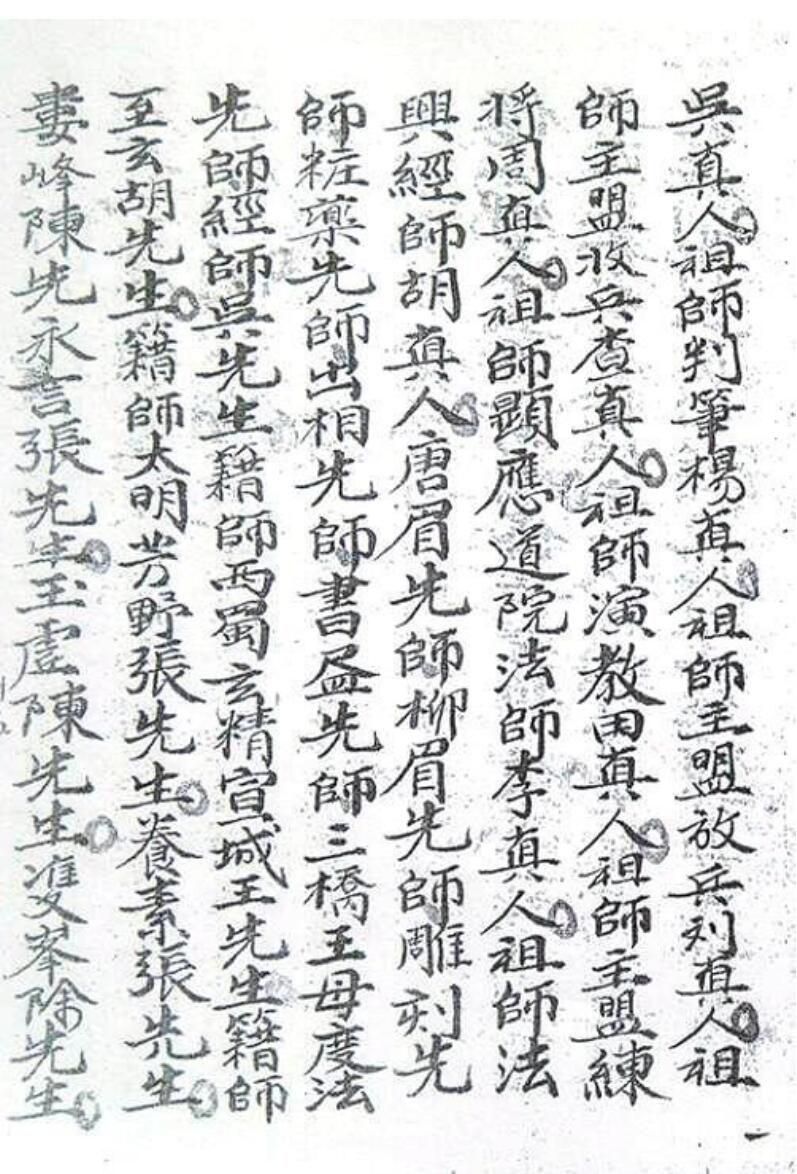 吳真人祖師判筆楊真人祖師主盟放兵刘真人祖
師主盟收兵查真人祖師演教田真人祖師主盟練
将周真人祖師顕應道院法師李真人祖師法
興經師胡真人唐眉先師柳眉先師雕刻先
師粧藥先師出相先師書盈先師三橋王母度法
先師經師吳先生籍師西蜀玄精宣城王先生籍師
至玄胡先生籍師太明芳野張先生養素張先生
婁峰陳先永言張先生玉虚陳先生雙峯除先生